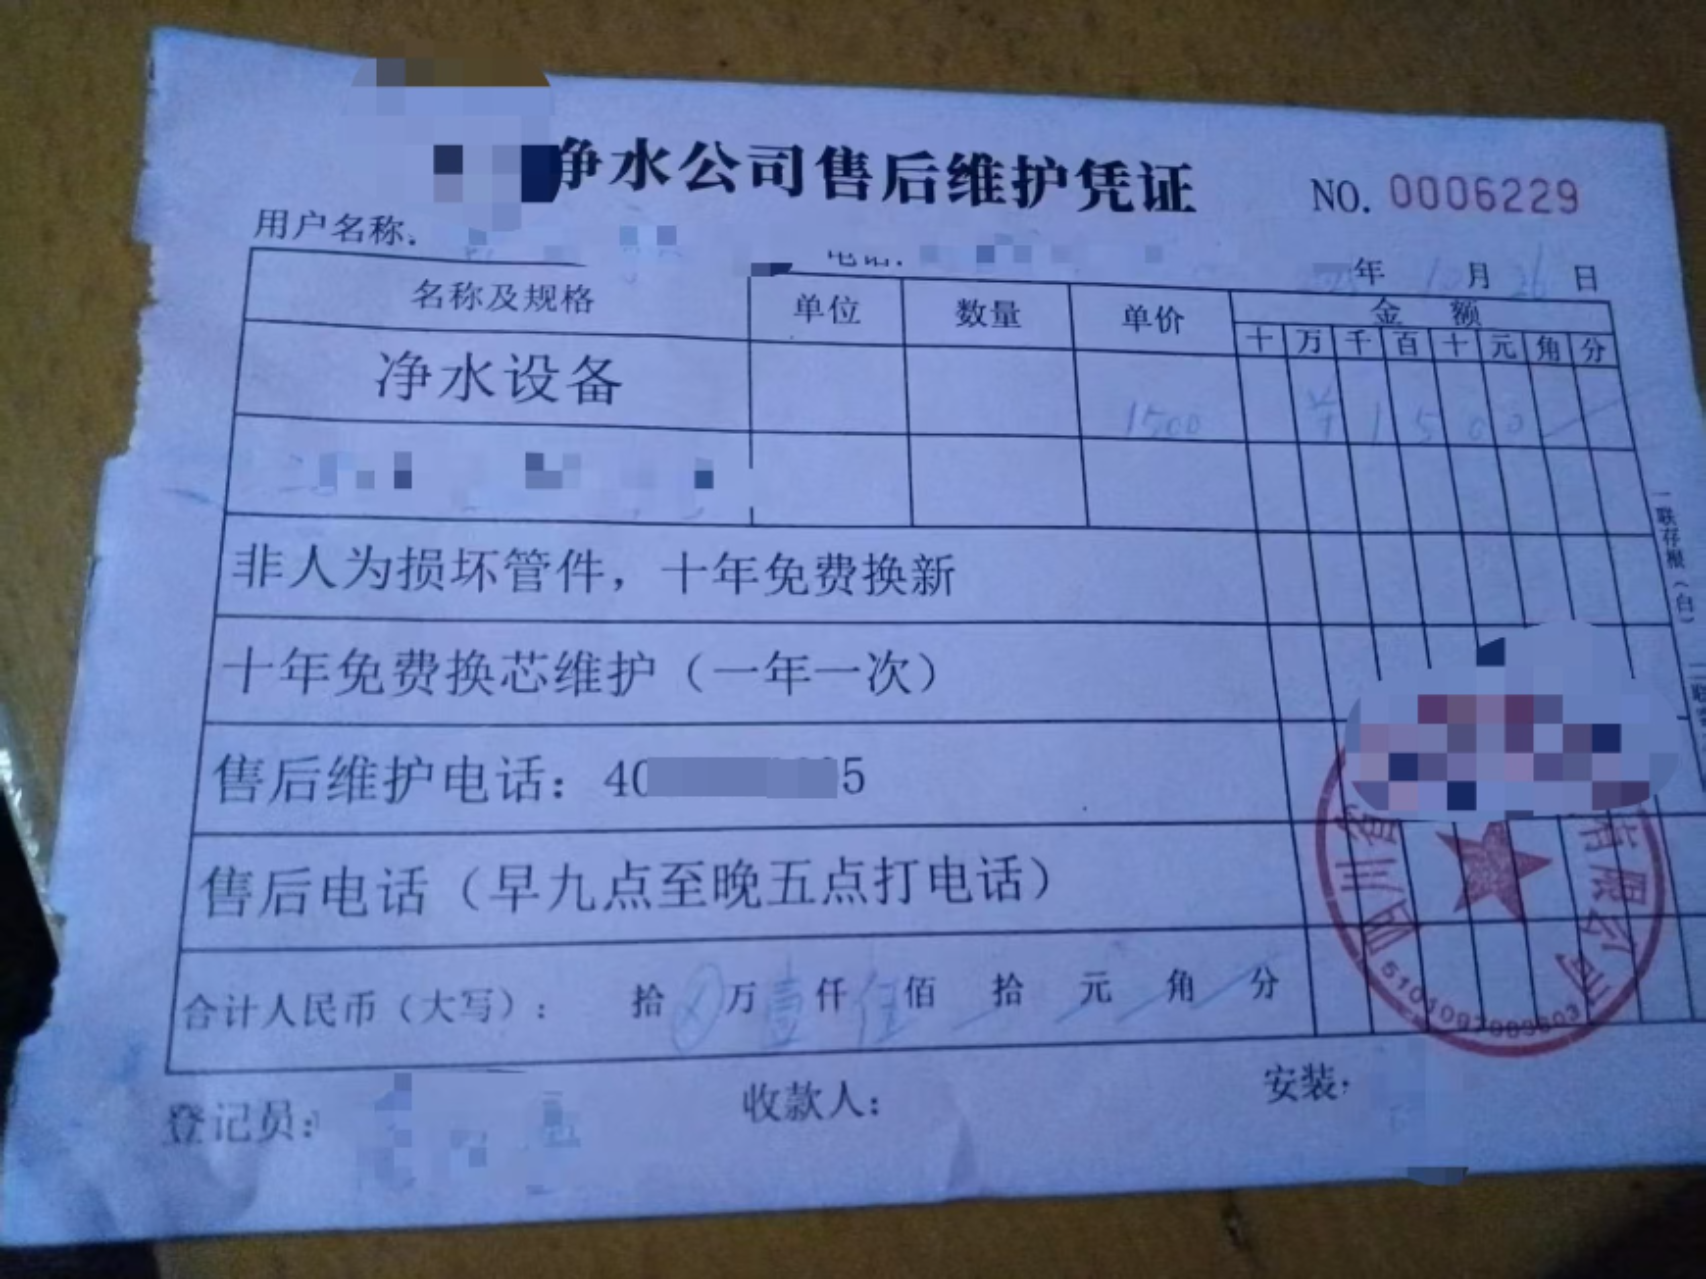 净水公司售后维护凭证 NO. 0006229
用户名称: 电话: 年 月 日
名称及规格 单位 数量 单价 金额
十 万 千 百 十 元 角 分
净水设备 1500 ¥ 1 5 0 0
非人为损坏管件，十年免费换新
十年免费换芯维护（一年一次）
售后维护电话：40 5
售后电话（早九点至晚五点打电话）
合计人民币（大写）： 拾 ⊗ 万 壹 仟 伍 佰 拾 元 角 分
登记员: 收款人： 安装:
一联存根（白）
二联
四川省 有限公司